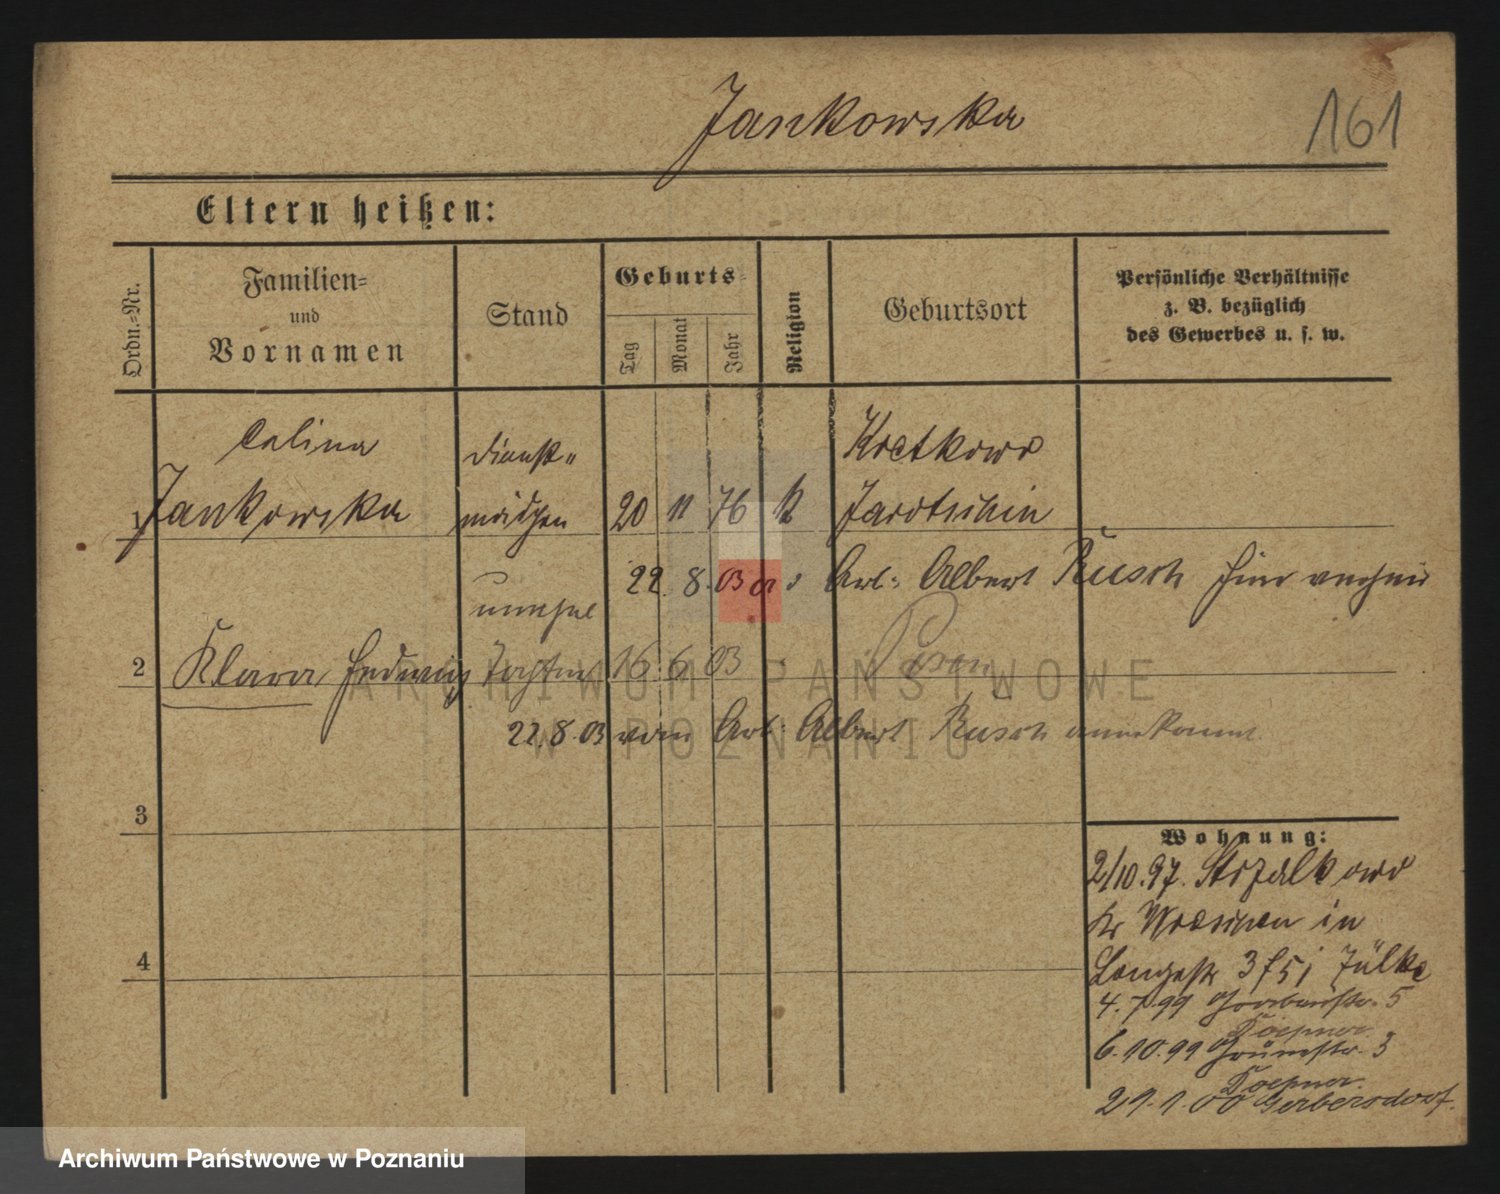 Jankowska
161
Eltern heißen:
Ordn.-Nr.
Familien-
und
Vornamen
Stand
Geburts-
Tag
Monat
Jahr
Religion
Geburtsort
Persönliche Verhältnisse
z. B. bezüglich
des Gewerbes u. s. w.
Celina
Dienst-
Kretkowo
1 Jankowska mädchen 20 11 76 k Jarotschin
22. 8. 03 Arb. Albert Rusch
unehel
2 Klara Hedwig Tochter 16 6 03 Posen
22. 8. 03 vom Arb. Albert Rusch anerkannt
3
4
Wohnung:
2/10. 97. Strzalkowo
Kr Wreschen in
Langestr 3 Jülke
4. 7. 99 5
Toepner
6. 10. 99 Grünestr. 3
Toepner
29. 1. 00 Gerbersdorf.
ARCHIWUM PAŃSTWOWE
W POZNANIU
Archiwum Państwowe w Poznaniu